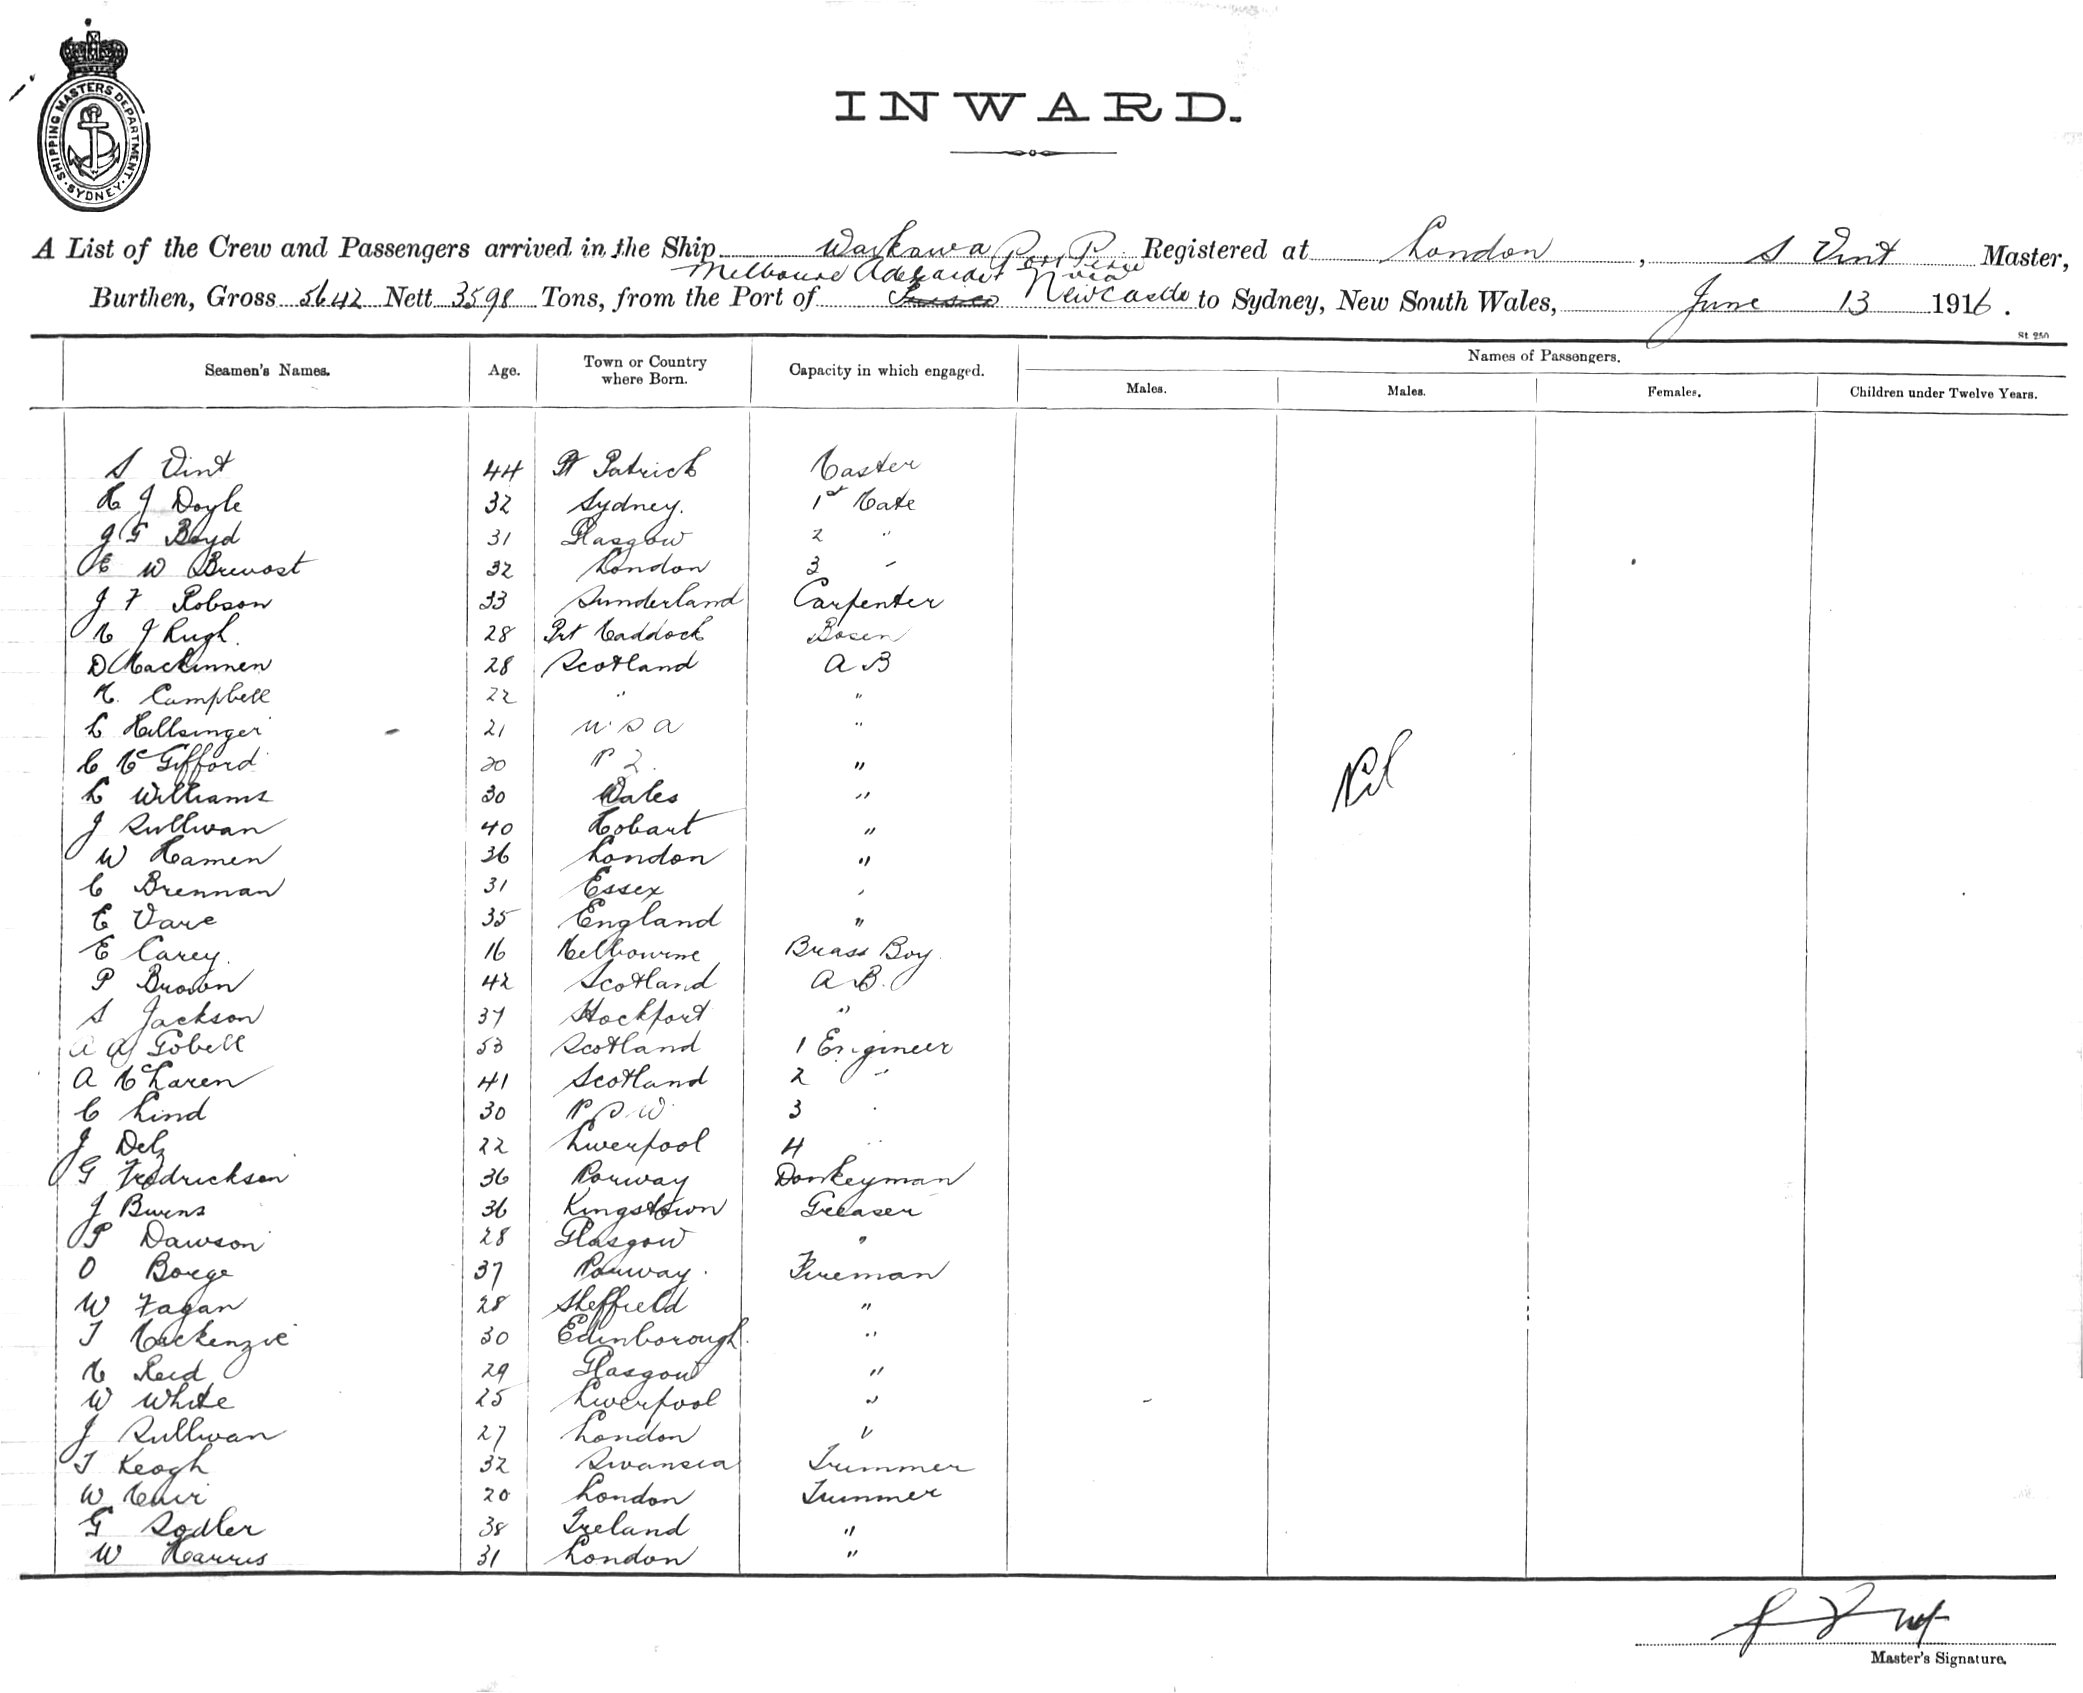 SHIPPING MASTERS DEPARTMENT. SYDNEY
INWARD.
A List of the Crew and Passengers arrived in the Ship Registered at London, S Vint Master,
Melbourne Adelaide Port Pirie via
Burthen, Gross 5642 Nett 3598 Tons, from the Port of Newcastle to Sydney, New South Wales, June 13 1916.
St 250
Seamen's Names. Age. Town or Country where Born. Capacity in which engaged. Names of Passengers.
Males. Males. Females. Children under Twelve Years.
S Vint 44 Pt Patrick Master
H J Doyle 32 Sydney. 1st Mate
J G Boyd 31 Glasgow 2 "
E W Brevost 32 London 3 "
J F Robson 33 Sunderland Carpenter
M J Pugh. 28 Prt Maddock Bosen
D Mackinnen 28 Scotland A B
M. Campbell 22 " "
L Hellsinger 21 U S A "
C McGifford 20 N Z. "
L Williams 30 Wales "
Nil
J Sullivan 40 Hobart "
W Hamen 36 London "
C Brennan 31 Essex "
E Vare 35 England "
E Carey. 16 Melbourne Brass Boy.
P Brown 42 Scotland A B.
S Jackson 37 Stockport "
A Gobell 53 Scotland 1 Engineer
A McLaren 41 Scotland 2 "
C Lind 30 N S W 3 "
J 22 Liverpool 4 "
G Fredricksen 36 Norway Donkeyman
J Burns 36 Kingstown Greaser
P Dawson 28 Glasgow "
O Borge 37 Norway. Fireman
W Fagan 28 Sheffield "
T Mackenzie 30 Edinborough. "
M Reid 29 Glasgow "
W White 25 Liverpool "
J Sullivan 27 London "
T Keogh 32 Swansea Trimmer
W Muir 20 London Trimmer
G Sodler 38 Ireland "
W Harris 31 London "
S Vint
Master's Signature.